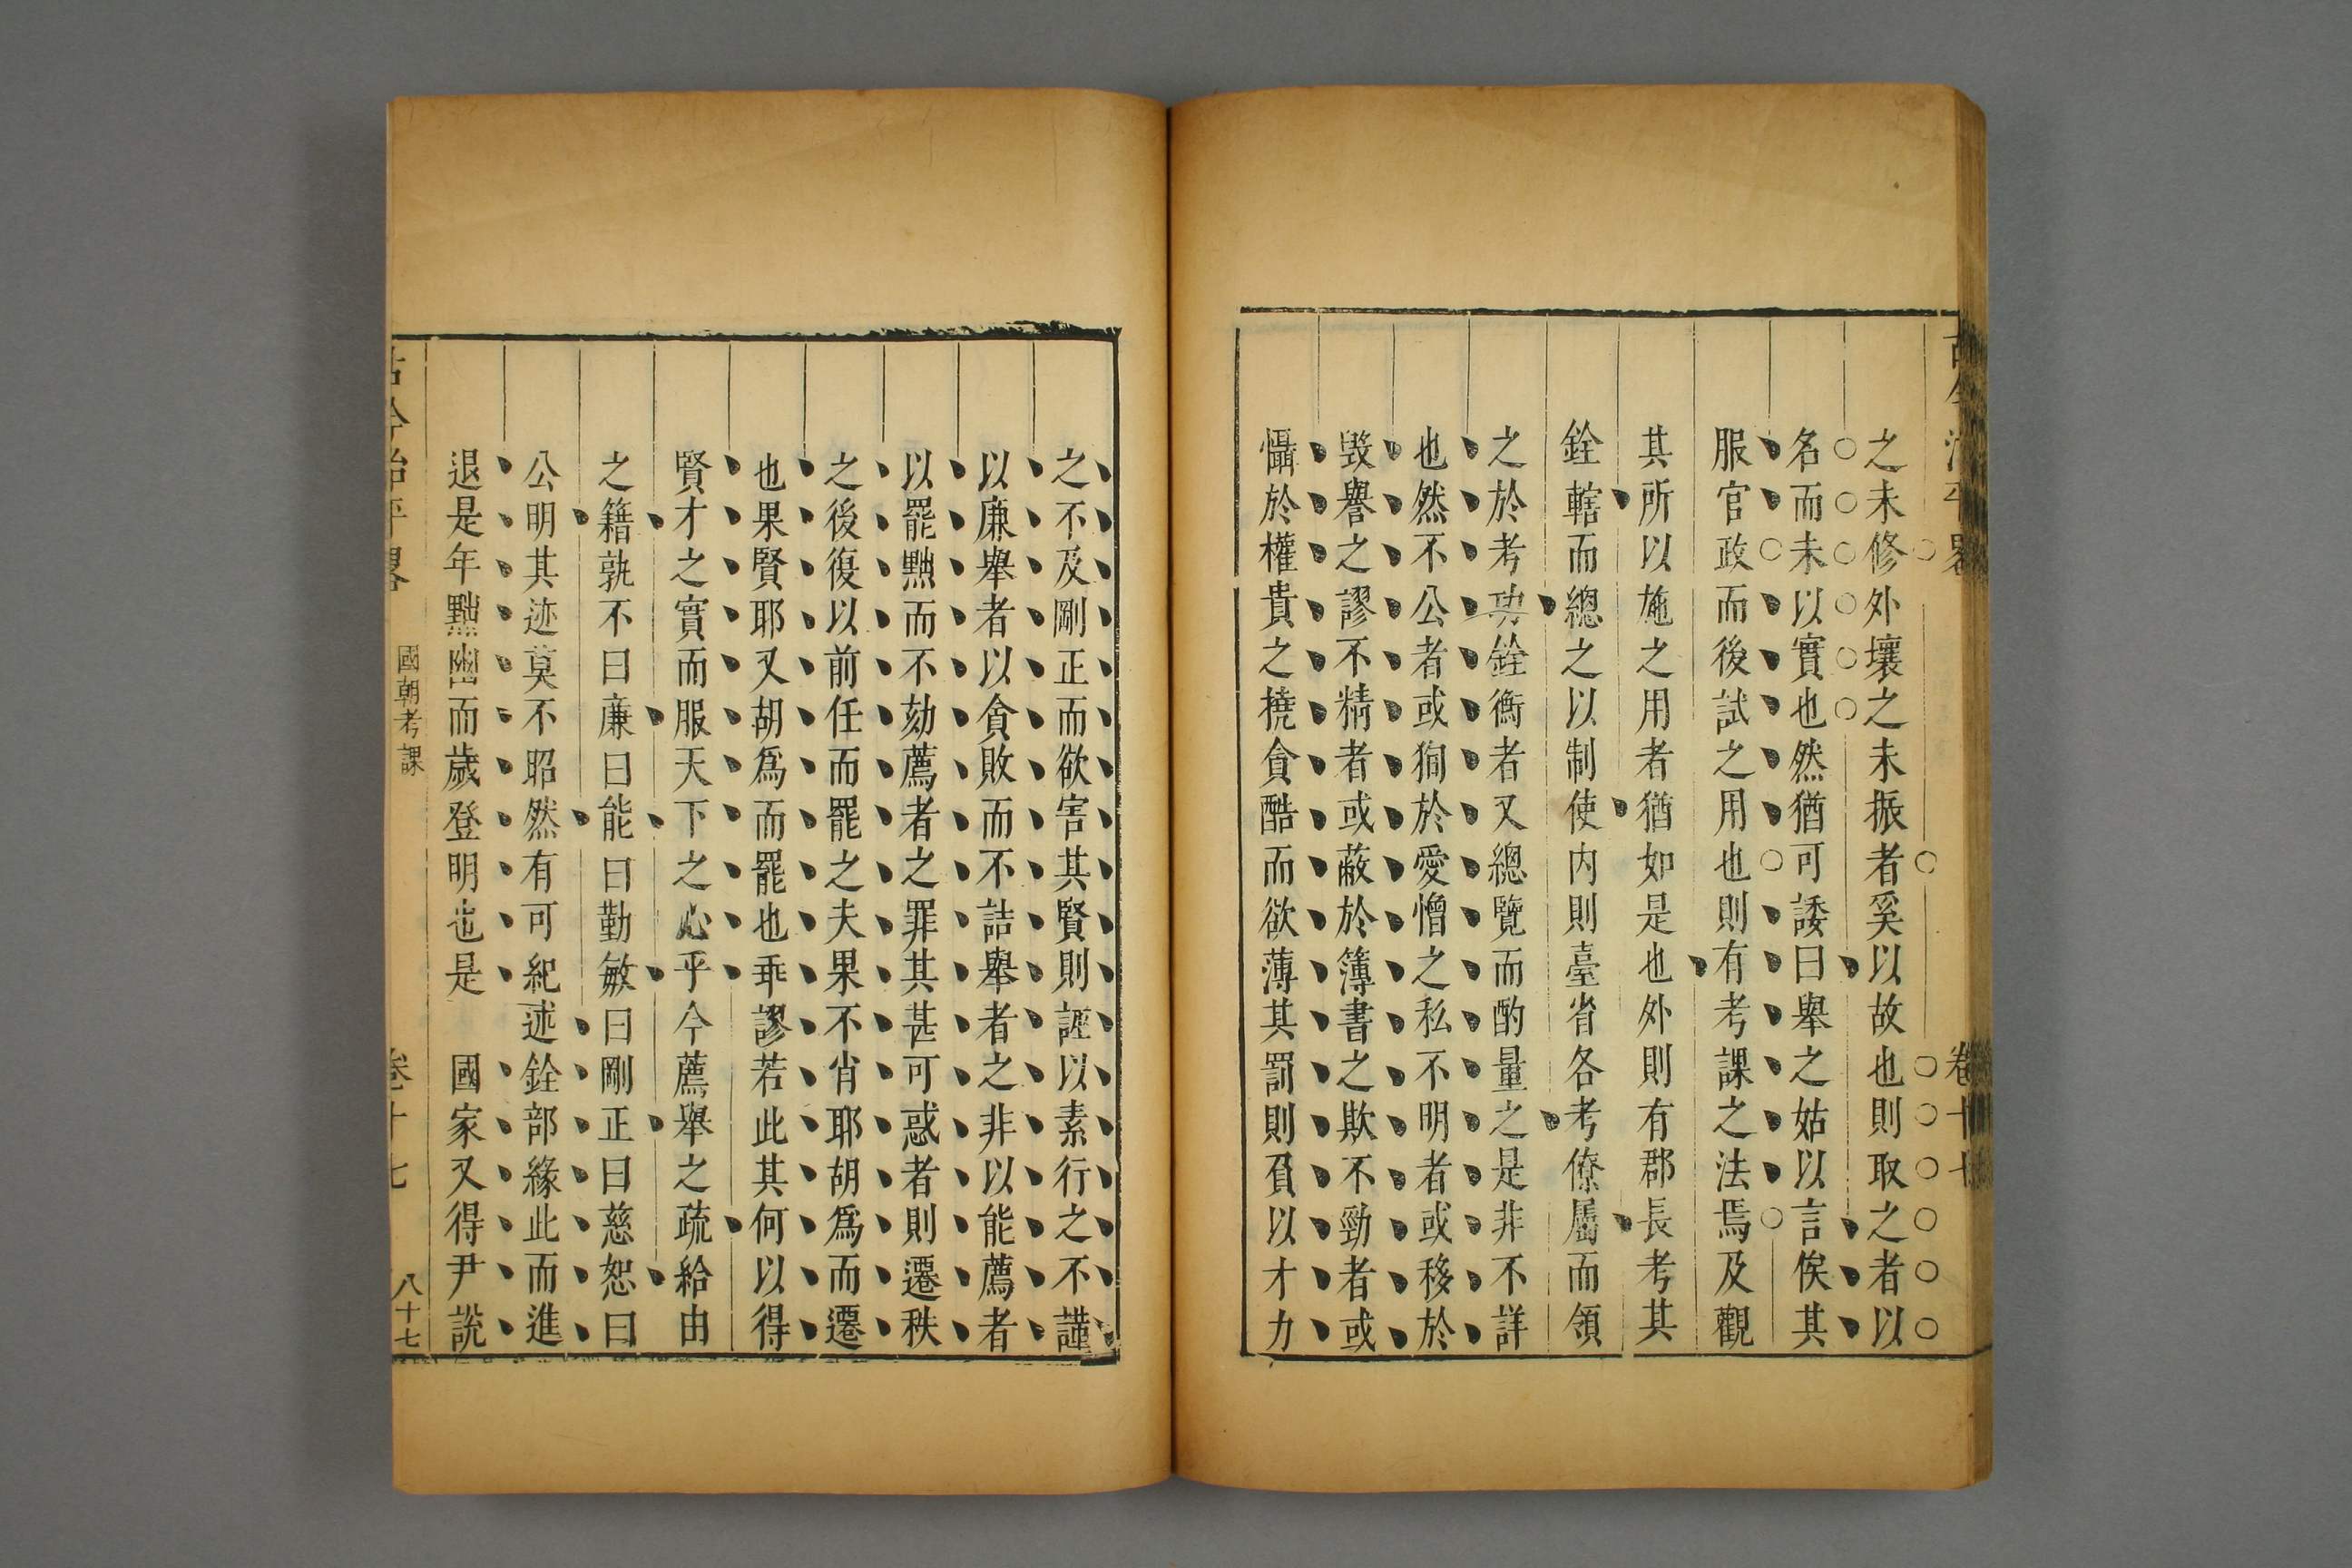 古今治平畧 卷十七
之未修外壤之未振者奚以故也則取之者以
名而未以實也然猶可諉曰舉之姑以言俟其
服官政而後試之用也則有考課之法焉及觀
其所以施之用者猶如是也外則有郡長考其
銓轄而總之以制使内則臺省各考僚屬而領
之於考功銓衡者又總覽而酌量之是非不詳
也然不公者或狥於愛憎之私不明者或移於
毀譽之謬不精者或蔽於簿書之欺不勁者或
懾於權貴之撓貪酷而欲薄其罰則負以才力
之不及剛正而欲害其賢則誣以素行之不謹
以廉舉者以貪敗而不詰舉者之非以能薦者
以罷黜而不劾薦者之罪其甚可惑者則遷秩
之後復以前任而罷之夫果不肖耶胡爲而遷
也果賢耶又胡爲而罷也乖謬若此其何以得
賢才之實而服天下之心乎今薦舉之疏給由
之籍孰不曰廉曰能曰勤敏曰剛正曰慈恕曰
公明其迹莫不昭然有可紀述銓部緣此而進
退是年黜幽而歲登明也是 國家又得尹說
古今治平畧 國朝考課 卷十七 八十七